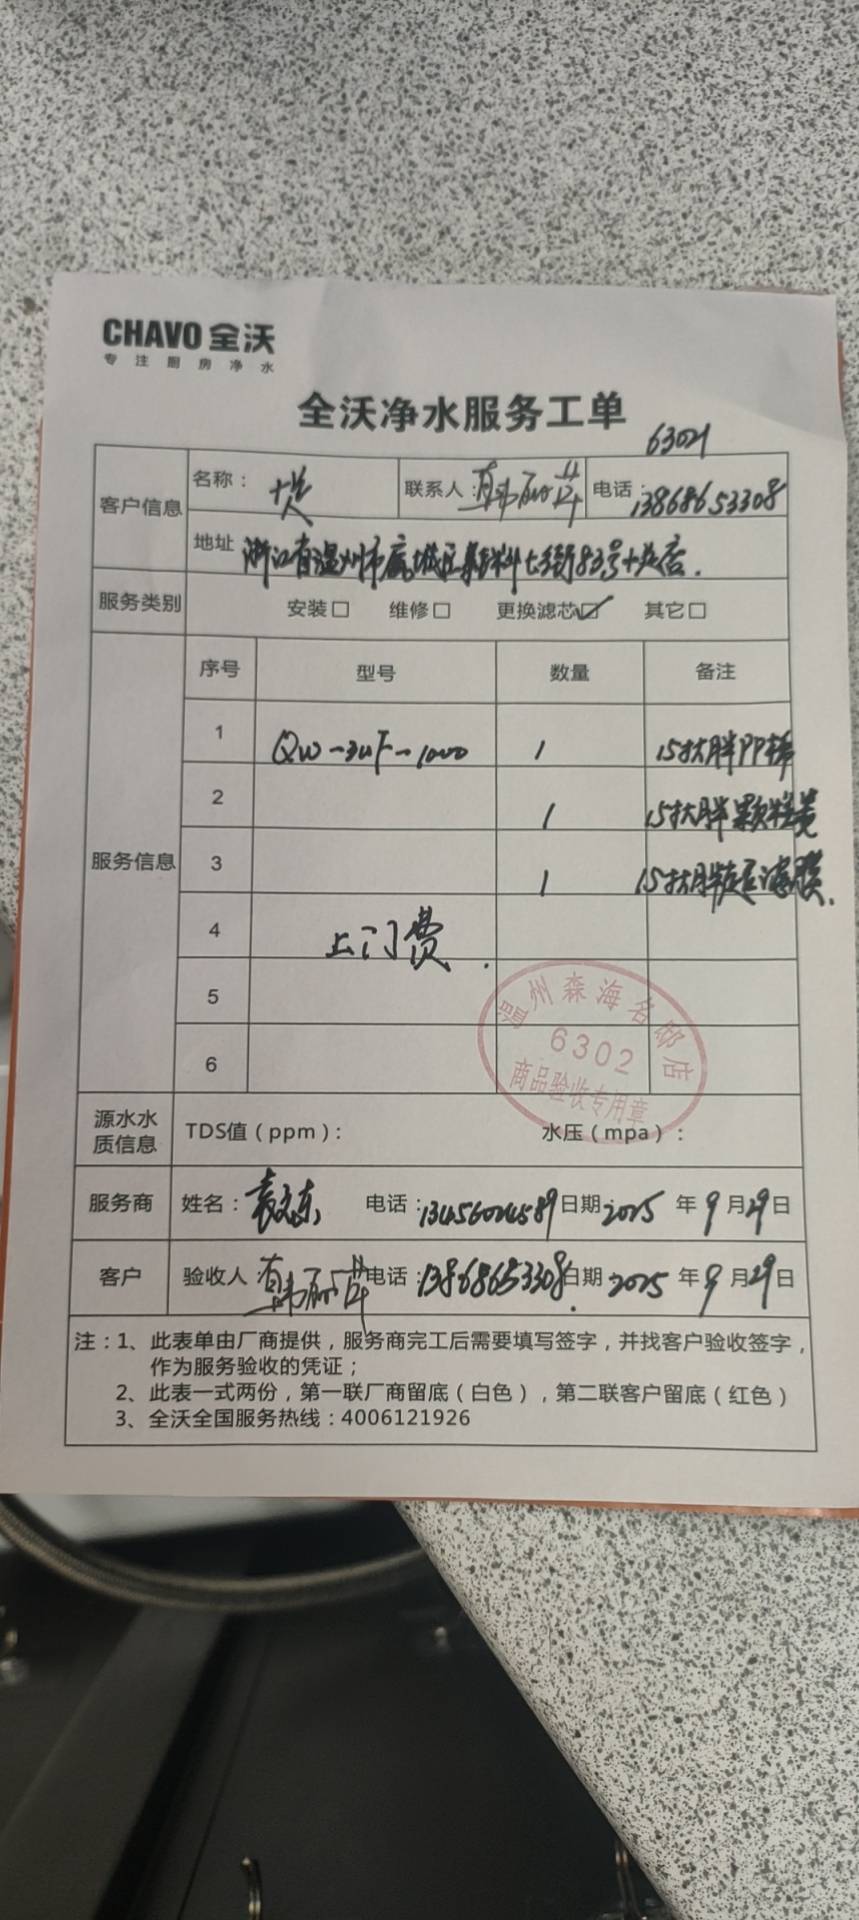 CHAVO 全沃
专注厨房净水
全沃净水服务工单
63021
客户信息 名称： 联系人： 韩丽萍 电话：13868653308
地址 浙江省温州市鹿城区 七街83号十足店.
服务类别 安装□ 维修□ 更换滤芯☑ 其它□
服务信息 序号 型号 数量 备注
1 QW-3UF-1000 1 15寸大胖PP棉
2 1 15寸大胖颗粒炭
3 1 15寸大胖超滤膜.
4 上门费.
5
6
温州森海名邸店
6302
商品验收专用章
源水水质信息 TDS值（ppm）： 水压（mpa）：
服务商 姓名：袁文东 电话：13456024589 日期：2025 年 9 月 29 日
客户 验收人：韩丽萍 电话：13868653308. 日期：2025 年 9 月 29 日
注：1、此表单由厂商提供，服务商完工后需要填写签字，并找客户验收签字，
作为服务验收的凭证；
2、此表一式两份，第一联厂商留底（白色），第二联客户留底（红色）
3、全沃全国服务热线：4006121926